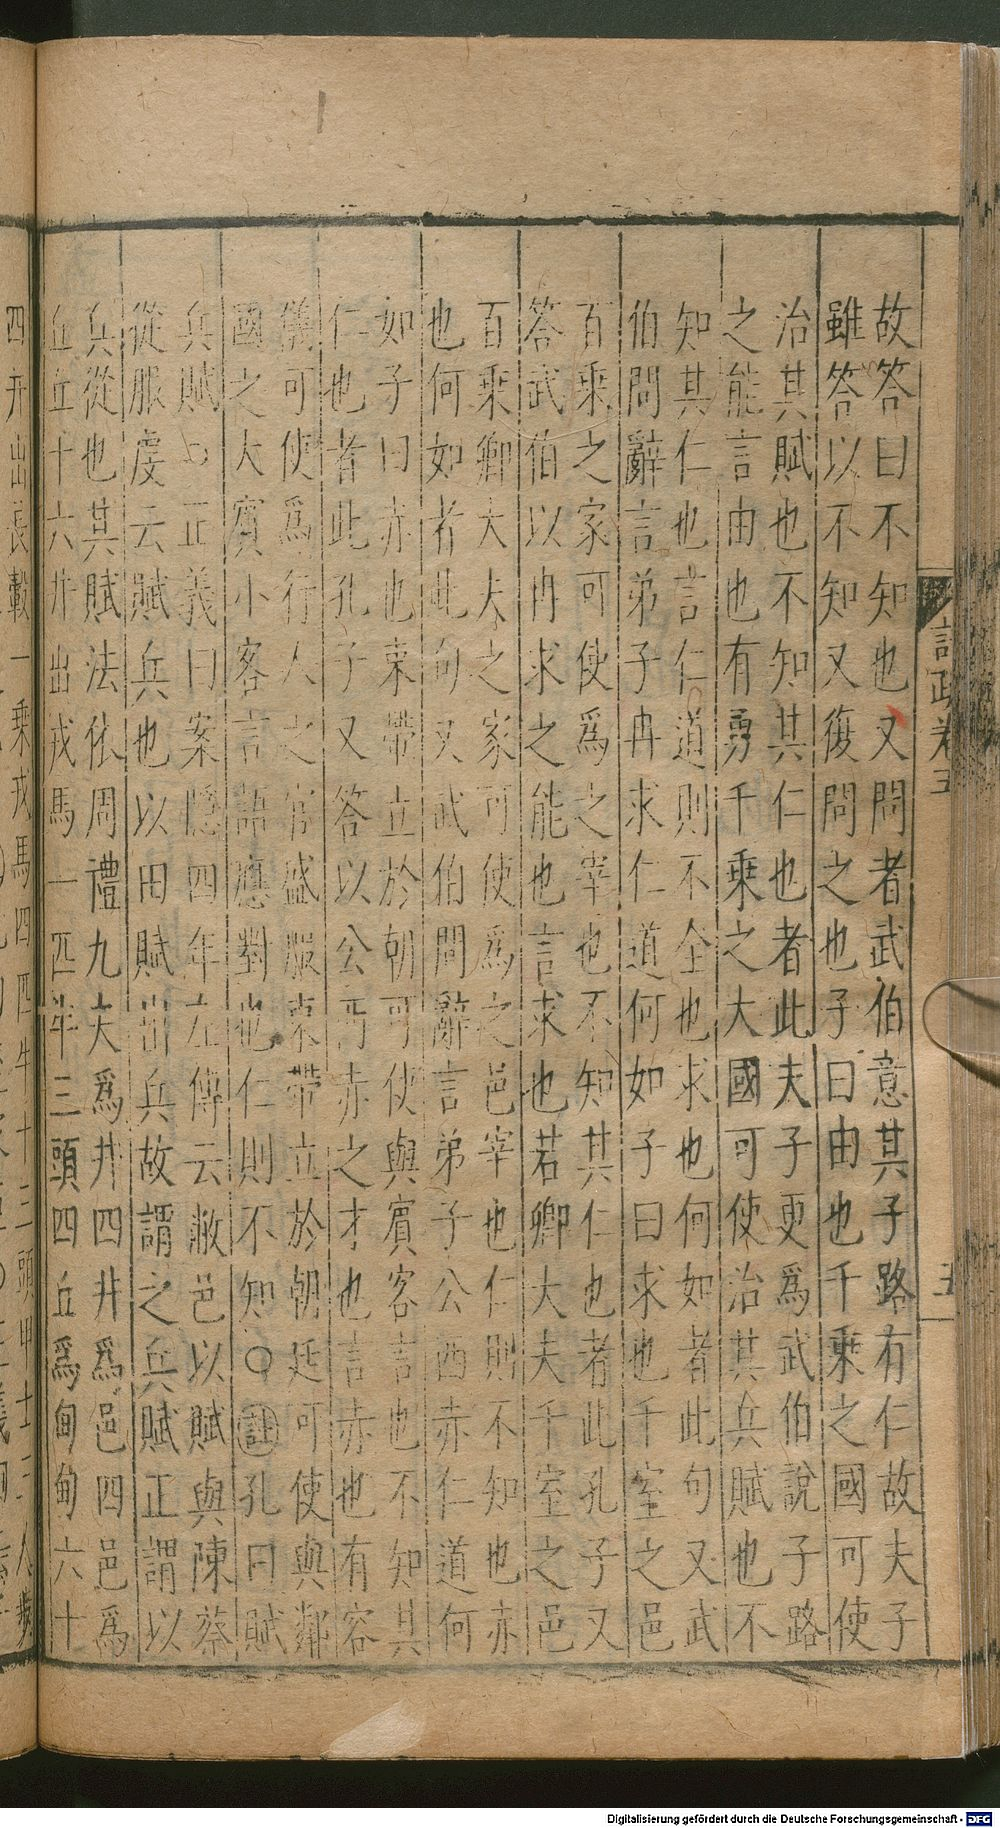 故答曰不知也又問者武伯意其子路有仁故夫子
雖答以不知又復問之也子曰由也千乘之國可使
治其賦也不知其仁也者此夫子更爲武伯說子路
之能言由也有勇千乘之大國可使治其兵賦也不
知其仁也言仁道則不全也求也何如者此句又武
伯問辭言弟子冉求仁道何如子曰求也千室之邑
百乘之家可使爲之宰也不知其仁也者此孔子又
答武伯以冉求之能也言求也若卿大夫千室之邑
百乘卿大夫之家可使爲之邑宰也仁則不知也赤
也何如者此句又武伯問辭言弟子公西赤仁道何
如子曰赤也束帶立於朝可使與賓客言也不知其
仁也者此孔子又答以公西赤之才也言赤也有容
儀可使爲行人之官盛服束帶立於朝廷可使與鄰
國之大賓小客言語應對也仁則不知○註孔曰賦
兵賦○正義曰案隱四年左傳云敝邑以賦與陳蔡
從服虔云賦兵也以田賦出兵故謂之兵賦正謂以
兵從也其賦法依周禮九夫爲井四井爲邑四邑爲
丘丘十六井出戎馬一匹牛三頭四丘爲甸甸六十
四井出長轂一乘戎馬四匹牛十二頭甲士三人
卷五
五
Digitalisierung gefördert durch die Deutsche Forschungsgemeinschaft - DFG